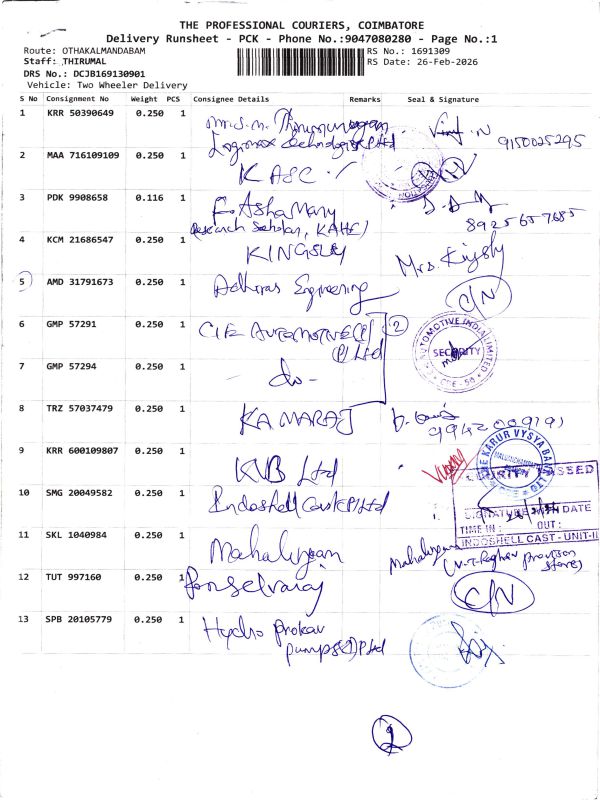 THE PROFESSIONAL COURIERS, COIMBATORE
Delivery Runsheet - PCK - Phone No.:9047080280 - Page No.:1
Route: OTHAKALMANDABAM
RS No.: 1691309
Staff: THIRUMAL
RS Date: 26-Feb-2026
DRS No.: DCJB169130901
Vehicle: Two Wheeler Delivery
S No Consignment No Weight PCS Consignee Details Remarks Seal & Signature
1 KRR 50390649 0.250 1 Mr.S.M.
Technologies P Ltd
9150025295
2 MAA 716109109 0.250 1 KASC
3 PDK 9908658 0.116 1 F. Asha Mary
Research Scholar, KAHE)
8925657685
4 KCM 21686547 0.250 1 KINGSLY
Mrs. Kingsly
5 AMD 31791673 0.250 1 Engineering
C/N
6 GMP 57291 0.250 1 CIE AUTOMOTIVE (I)
(P) Ltd
2
AUTOMOTIVE INDIA LIMITED
SECURITY
7 GMP 57294 0.250 1 - do -
8 TRZ 57037479 0.250 1 KAMARAJ
9942009191
9 KRR 600109807 0.250 1 KVB Ltd
THE KARUR VYSYA BANK LTD
10 SMG 20049582 0.250 1 Indoshell Cast (P) Ltd
SECURITY PASSED
SIGNATURE WITH DATE
TIME IN : OUT :
INDOSHELL CAST - UNIT-II
11 SKL 1040984 0.250 1 Mahaliyam
(V.T. Raghav Provision
Stores)
12 TUT 997160 0.250 1 Ponselvaraj
C/N
13 SPB 20105779 0.250 1 Hydro Prokav
Pumps (I) P Ltd